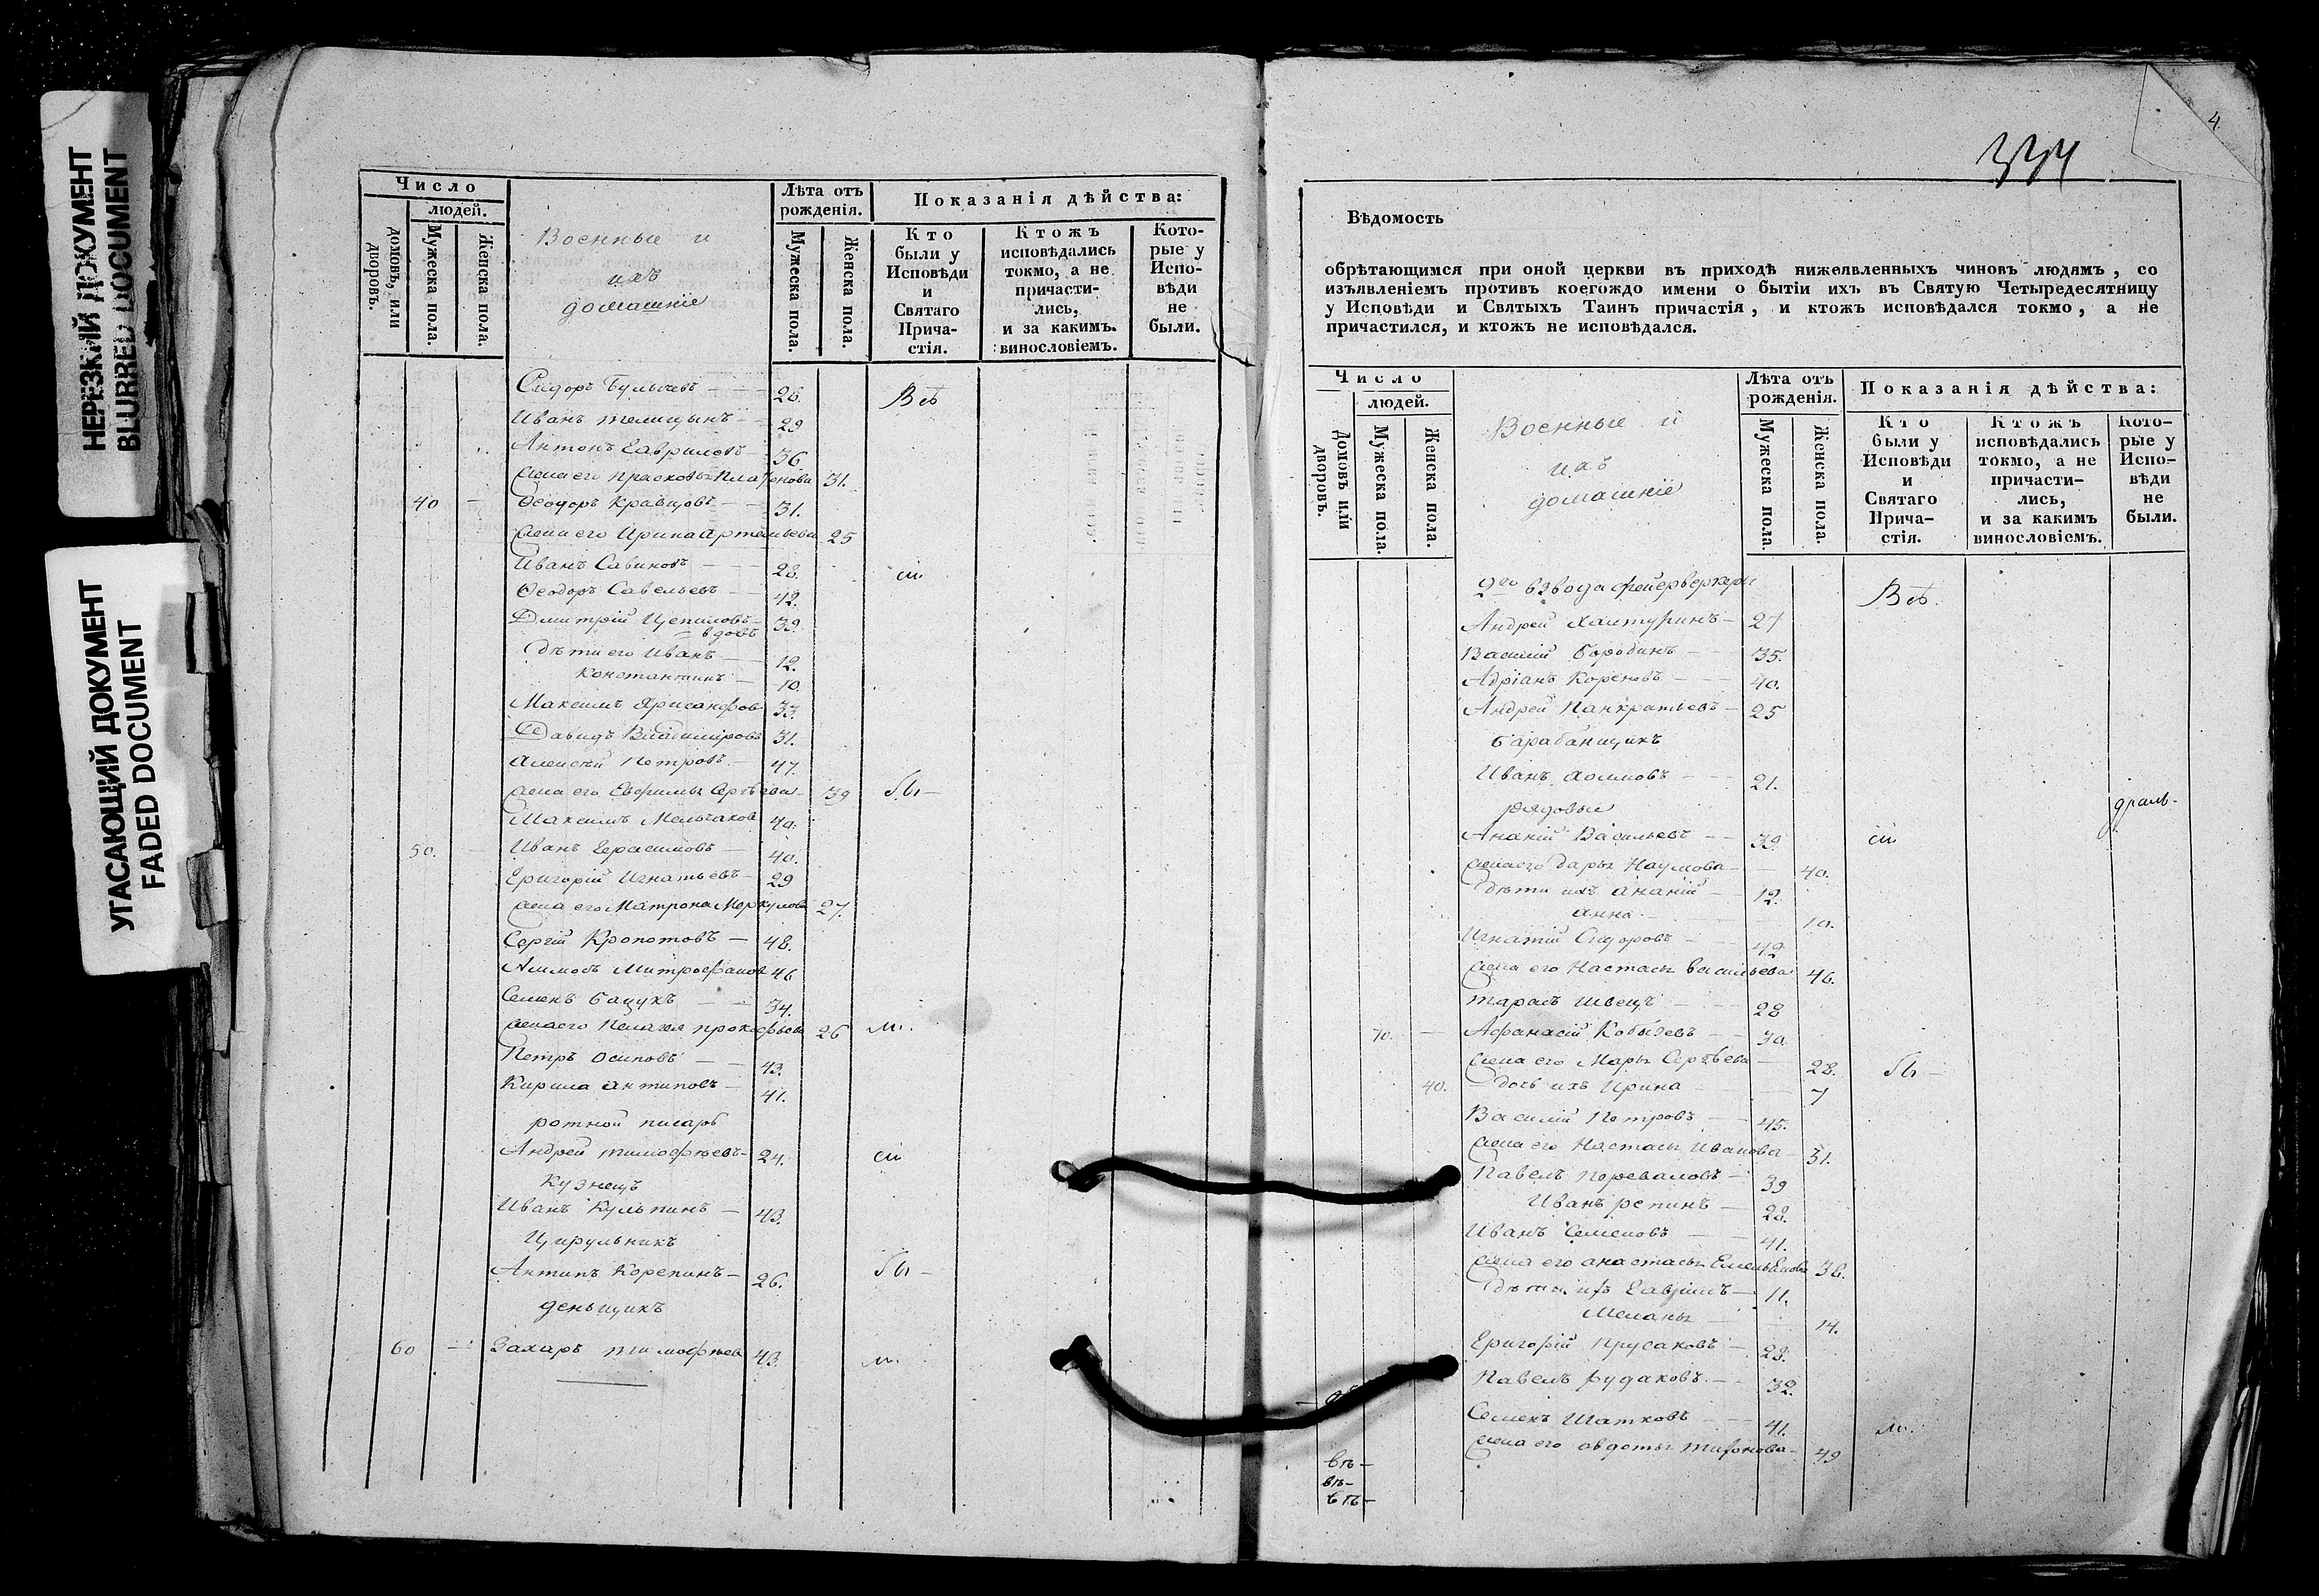 НЕРЕЗКИЙ ДОКУМЕНТ
BLURRED DOCUMENT
УГАСАЮЩИЙ ДОКУМЕНТ
FADED DOCUMENT
Число
людей.
домовъ, или дворовъ.
Мужеска пола.
Женска пола.
Военные и
ихъ
домашніе
Лѣта отъ рожденія.
Мужеска пола.
Женска пола.
Показанія дѣйства:
Кто были у Исповѣди и Святаго Прича-стія.
Ктожъ исповѣдались токмо, а не причасти-лись, и за какимъ. винословіемъ.
Кото-рые у Испо-вѣди не были.
Сидоръ Булычевъ — 26. Всѣ
Иванъ Телицынъ — 29
Антонъ Гавриловъ — 36
жена его Прасковья Платонова 31.
40 — Ѳеодоръ Кравцовъ — 31.
жена его Ирина Артемьева 25
Иванъ Савиновъ — 28. сіи
Ѳеодоръ Савельевъ — 42.
Дмитрій — 39.
вдовъ
дѣти его Иванъ — 12.
Константинъ — 10.
Максимъ 33.
Давидъ Владиміровъ 31.
Алексѣй Петровъ — 47.
жена его Сергѣева — 39 бы—
Максимъ Мельчаковъ 40.
50. — Иванъ Герасимовъ — 40.
Григорій Игнатьевъ — 29
жена его Матрона Меркулова 27.
Сергій Кропотовъ — 48.
Митрофанов 46
Семенъ Бацукъ — 34.
жена его Пелагея Прокофьева 26 ли.
Петръ Осиповъ — 43.
Кирила Антиповъ — 41.
ротной писарь
Андрей Тимофѣевъ — 24. сіи
кузнецъ
Иванъ Кульпинъ — 43.
Цирульникъ
Антипъ Корепинъ — 26. бы—
деньщикъ
60 — Захаръ Тимофѣев 43. ли.
4.
334
Вѣдомость
обрѣтающимся при оной церкви въ приходѣ нижеявленныхъ чиновъ людямъ, со
изъявленіемъ противъ коегождо имени о бытіи ихъ въ Святую Четыредесятницу
у Исповѣди и Святыхъ Таинъ причастія, и ктожъ исповѣдался токмо, а не
причастился, и ктожъ не исповѣдался.
Число
людей.
Домовъ или дворовъ.
Мужеска пола.
Женска пола.
Военные и
ихъ
домашніе
Лѣта отъ рожденія.
Мужеска пола.
Женска пола.
Показанія дѣйства:
Кто были у Исповѣди и Святаго Прича-стія.
Ктожъ исповѣдались токмо, а не причасти-лись, и за какимъ винословіемъ.
Кото-рые у Испо-вѣди не были.
2го взвода фейерверкеры Всѣ.
Андрей Хантуринъ — 27
Василій Бородинъ — 35.
Адріанъ Кореневъ — 40.
Андрей Панкратьевъ — 25
барабанщикъ
Иванъ 21.
рядовые
Ананій Васильевъ — 39. сіи
жена его Дарья Наумова — 40.
дѣти ихъ Ананій — 12.
Анна — 10.
Игнатій Сидоровъ — 42
жена его Настасья Васильева 46.
Тарасъ Швецъ — 28
70. — Афанасій Кобычевъ — 30.
жена его Марья Сергѣева — 28. бы—
40. дочь ихъ Ирина — 7
Василій Петровъ — 45.
жена его Настасья Иванова 31.
Павелъ Переваловъ — 39
Иванъ Репинъ — 28.
Иванъ Семеновъ — 41.
жена его Анастасья Емельянова 38.
дѣти ихъ Гавріилъ — 11.
Меланья — 14.
Григорій Прусаковъ — 28.
Павелъ Рудаковъ — 32.
Семенъ Шатковъ — 41. ли.
жена его Авдотья 49
въ—
въ—
въ—